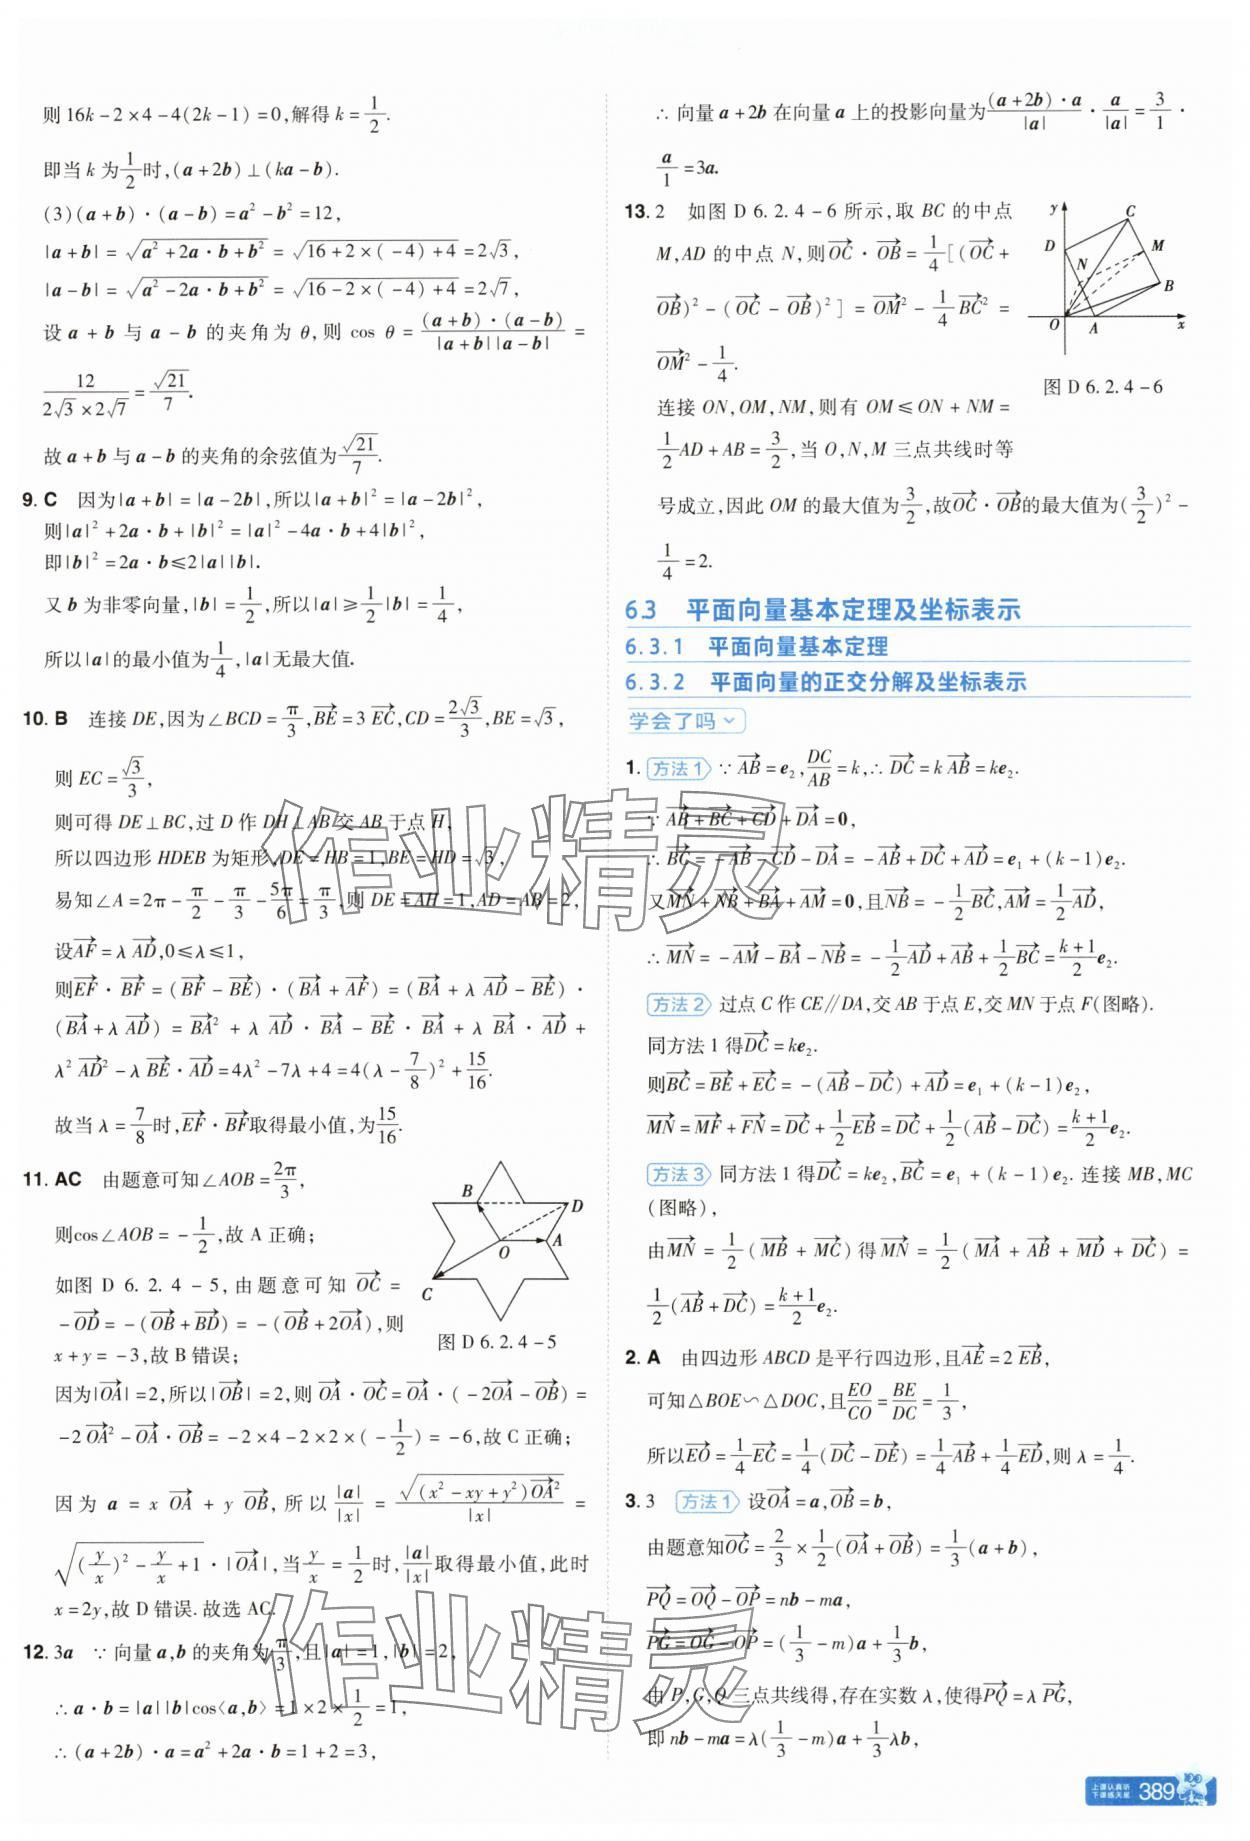 则 16k-2×4-4(2k-1)=0,解得 k=1/2.
即当 k 为1/2时,(a+2b)⊥(ka-b).
(3)(a+b)·(a-b)=a²-b²=12,
|a+b|=√(a²+2a·b+b²)=√(16+2×(-4)+4)=2√3,
|a-b|=√(a²-2a·b+b²)=√(16-2×(-4)+4)=2√7,
设 a+b 与 a-b 的夹角为 θ,则 cos θ=(a+b)·(a-b)/|a+b||a-b|=
12/(2√3×2√7)=√21/7.
故 a+b 与 a-b 的夹角的余弦值为√21/7.
9. C 因为|a+b|=|a-2b|,所以|a+b|²=|a-2b|²,
则|a|²+2a·b+|b|²=|a|²-4a·b+4|b|²,
即|b|²=2a·b≤2|a||b|.
又 b 为非零向量,|b|=1/2,所以|a|≥1/2|b|=1/4,
所以|a|的最小值为1/4,|a|无最大值.
10. B 连接 DE,因为∠BCD=π/3,BE→=3 EC→,CD=2√3/3,BE=√3,
则 EC=√3/3,
则可得 DE⊥BC,过 D 作 DH⊥AB 交 AB 于点 H,
所以四边形 HDEB 为矩形,DE=HB=1,BE=HD=√3,
易知∠A=2π-π/2-π/3-5π/6=π/3,则 DE=AH=1,AD=AB=2,
设AF→=λ AD→,0≤λ≤1,
则EF→·BF→=(BF→-BE→)·(BA→+AF→)=(BA→+λ AD→-BE→)·
(BA→+λ AD→)=BA→²+λ AD→·BA→-BE→·BA→+λ BA→·AD→+
λ² AD→²-λ BE→·AD→=4λ²-7λ+4=4(λ-7/8)²+15/16.
故当 λ=7/8时,EF→·BF→取得最小值,为15/16.
11. AC 由题意可知∠AOB=2π/3,
则cos∠AOB=-1/2,故 A 正确;
如图 D 6.2.4-5,由题意可知 OC→=
-OD→=-(OB→+BD→)=-(OB→+2OA→),则
x+y=-3,故 B 错误;
B
D
O
A
C
图 D 6.2.4-5
因为|OA→|=2,所以|OB→|=2,则 OA→·OC→=OA→·(-2OA→-OB→)=
-2 OA→²-OA→·OB→=-2×4-2×2×(-1/2)=-6,故 C 正确;
因为 a=x OA→+y OB→,所以|a|/|x|=√((x²-xy+y²)OA→²)/|x|=
√((y/x)²-y/x+1)·|OA→|,当y/x=1/2时,|a|/|x|取得最小值,此时
x=2y,故 D 错误.故选 AC.
12. 3a ∵向量 a,b 的夹角为π/3,且|a|=1,|b|=2,
∴a·b=|a||b|cos⟨a,b⟩=1×2×1/2=1,
∴(a+2b)·a=a²+2a·b=1+2=3,
∴向量 a+2b 在向量 a 上的投影向量为(a+2b)·a/|a|·a/|a|=3/1·
a/1=3a.
13. 2 如图 D 6.2.4-6 所示,取 BC 的中点
M,AD 的中点 N,则OC→·OB→=1/4[(OC→+
OB→)²-(OC→-OB→)²]=OM→²-1/4BC→²=
OM→²-1/4.
y
C
D
M
N
B
O
A
x
图 D 6.2.4-6
连接 ON,OM,NM,则有 OM≤ON+NM=
1/2AD+AB=3/2,当 O,N,M 三点共线时等
号成立,因此 OM 的最大值为3/2,故OC→·OB→的最大值为(3/2)²-
1/4=2.
6.3 平面向量基本定理及坐标表示
6.3.1 平面向量基本定理
6.3.2 平面向量的正交分解及坐标表示
学会了吗
1. 方法 1 ∵AB→=e₂,DC/AB=k,∴DC→=k AB→=ke₂.
∵AB→+BC→+CD→+DA→=0,
∴BC→=-AB→-CD→-DA→=-AB→+DC→+AD→=e₁+(k-1)e₂.
又MN→+NB→+BA→+AM→=0,且NB→=-1/2BC→,AM→=1/2AD→,
∴MN→=-AM→-BA→-NB→=-1/2AD→+AB→+1/2BC→=(k+1)/2e₂.
方法 2 过点 C 作 CE∥DA,交 AB 于点 E,交 MN 于点 F(图略).
同方法 1 得DC→=ke₂.
则BC→=BE→+EC→=-(AB→-DC→)+AD→=e₁+(k-1)e₂,
MN→=MF→+FN→=DC→+1/2EB→=DC→+1/2(AB→-DC→)=(k+1)/2e₂.
方法 3 同方法 1 得DC→=ke₂,BC→=e₁+(k-1)e₂.连接 MB,MC
(图略),
由MN→=1/2(MB→+MC→)得MN→=1/2(MA→+AB→+MD→+DC→)=
1/2(AB→+DC→)=(k+1)/2e₂.
2. A 由四边形 ABCD 是平行四边形,且AE→=2 EB→,
可知△BOE∽△DOC,且EO/CO=BE/DC=1/3,
所以EO→=1/4EC→=1/4(DC→-DE→)=1/4AB→+1/4ED→,则 λ=1/4.
3. 3 方法 1 设OA→=a,OB→=b,
由题意知OG→=2/3×1/2(OA→+OB→)=1/3(a+b),
PQ→=OQ→-OP→=nb-ma,
PG→=OG→-OP→=(1/3-m)a+1/3b,
由 P,G,Q 三点共线得,存在实数 λ,使得PQ→=λ PG→,
即 nb-ma=λ(1/3-m)a+1/3λb,
作业精灵
作业精灵
上课认真听
下课练天星
389